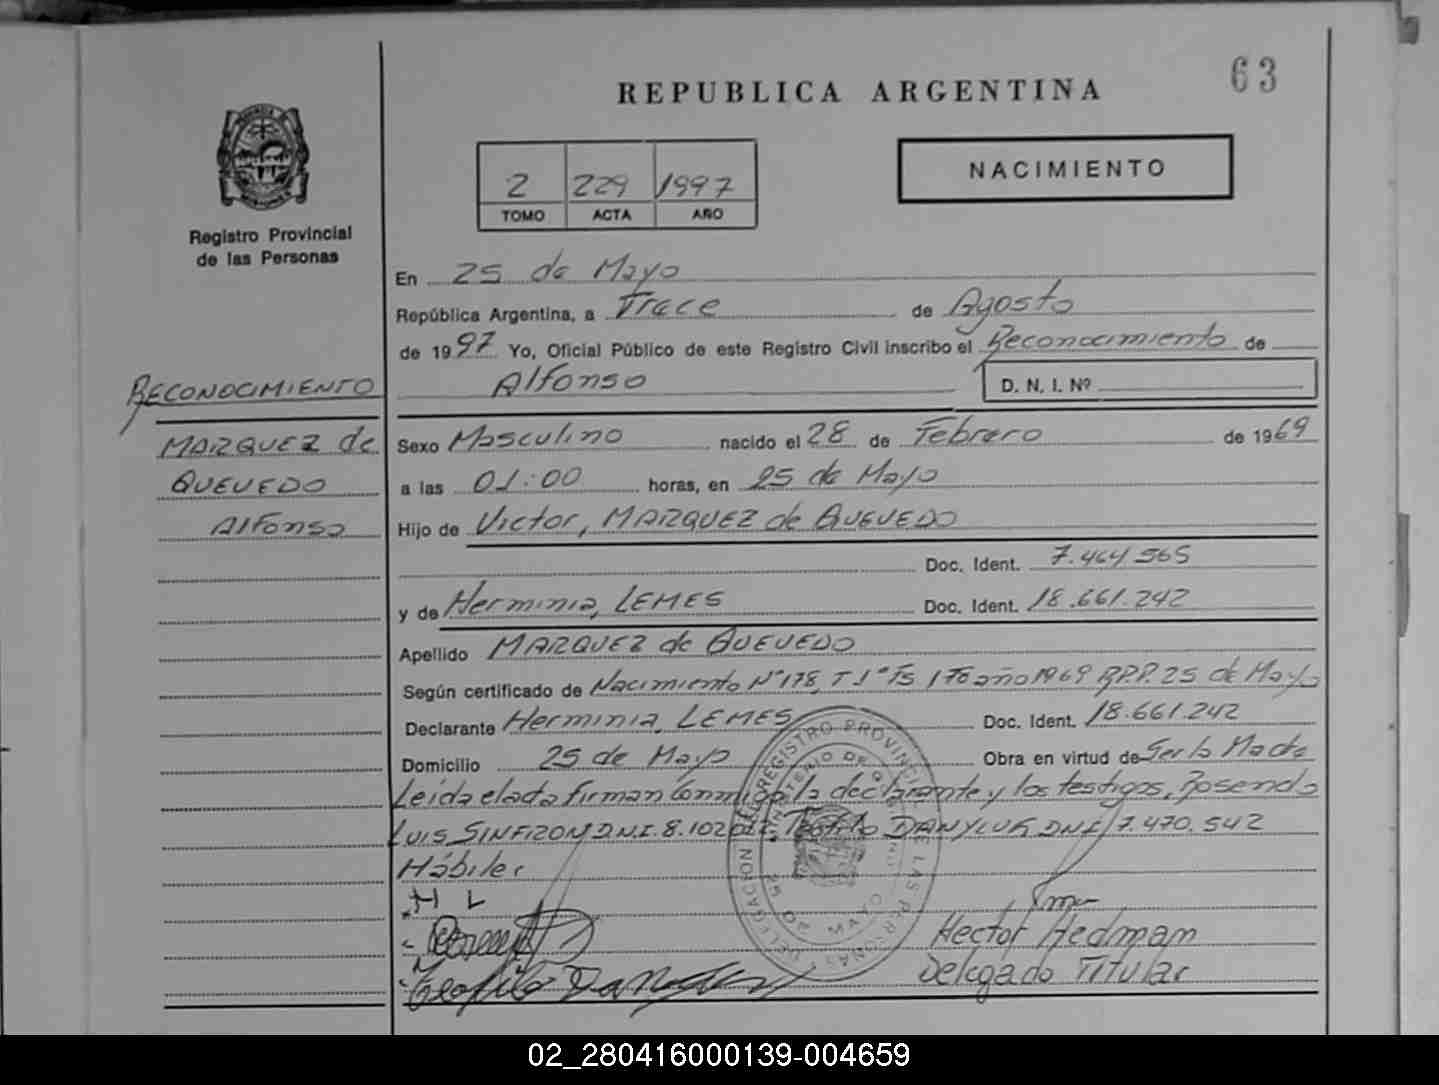 63
REPUBLICA ARGENTINA
NACIMIENTO
2 229 1997
TOMO ACTA AÑO
Registro Provincial
de las Personas
En 25 de Mayo
República Argentina, a Trece de Agosto
de 1997 Yo, Oficial Público de este Registro Civil inscribo el Reconocimiento de
Alfonso D. N. I. Nº
RECONOCIMIENTO
MARQUEZ de
QUEVEDO
Alfonso
Sexo Masculino nacido el 28 de Febrero de 1969
a las 01:00 horas, en 25 de Mayo
Hijo de Victor, MARQUEZ de QUEVEDO
Doc. Ident. 7.464.565
y de Herminia, LEMES Doc. Ident. 18.661.242
Apellido MARQUEZ de QUEVEDO
Según certificado de Nacimiento Nº 178, T 1º Fs. 170 año 1969 R.P.P. 25 de Mayo
Declarante Herminia, LEMES Doc. Ident. 18.661.242
Domicilio 25 de Mayo Obra en virtud de Ser la Madre
Leída el acta firman conmigo la declarante y los testigos, Rosendo
LUIS SINFIZON D.N.I. 8.102. Teofilo DANYLUK DNI 7.470.542
Hábiles
H L
Teofilo
Hector Hedmam
Delegado Titular
DELEGACION DEL REGISTRO PROVINCIAL DE LAS PERSONAS
MINISTERIO DE GOBIERNO
25 DE MAYO
02_280416000139-004659